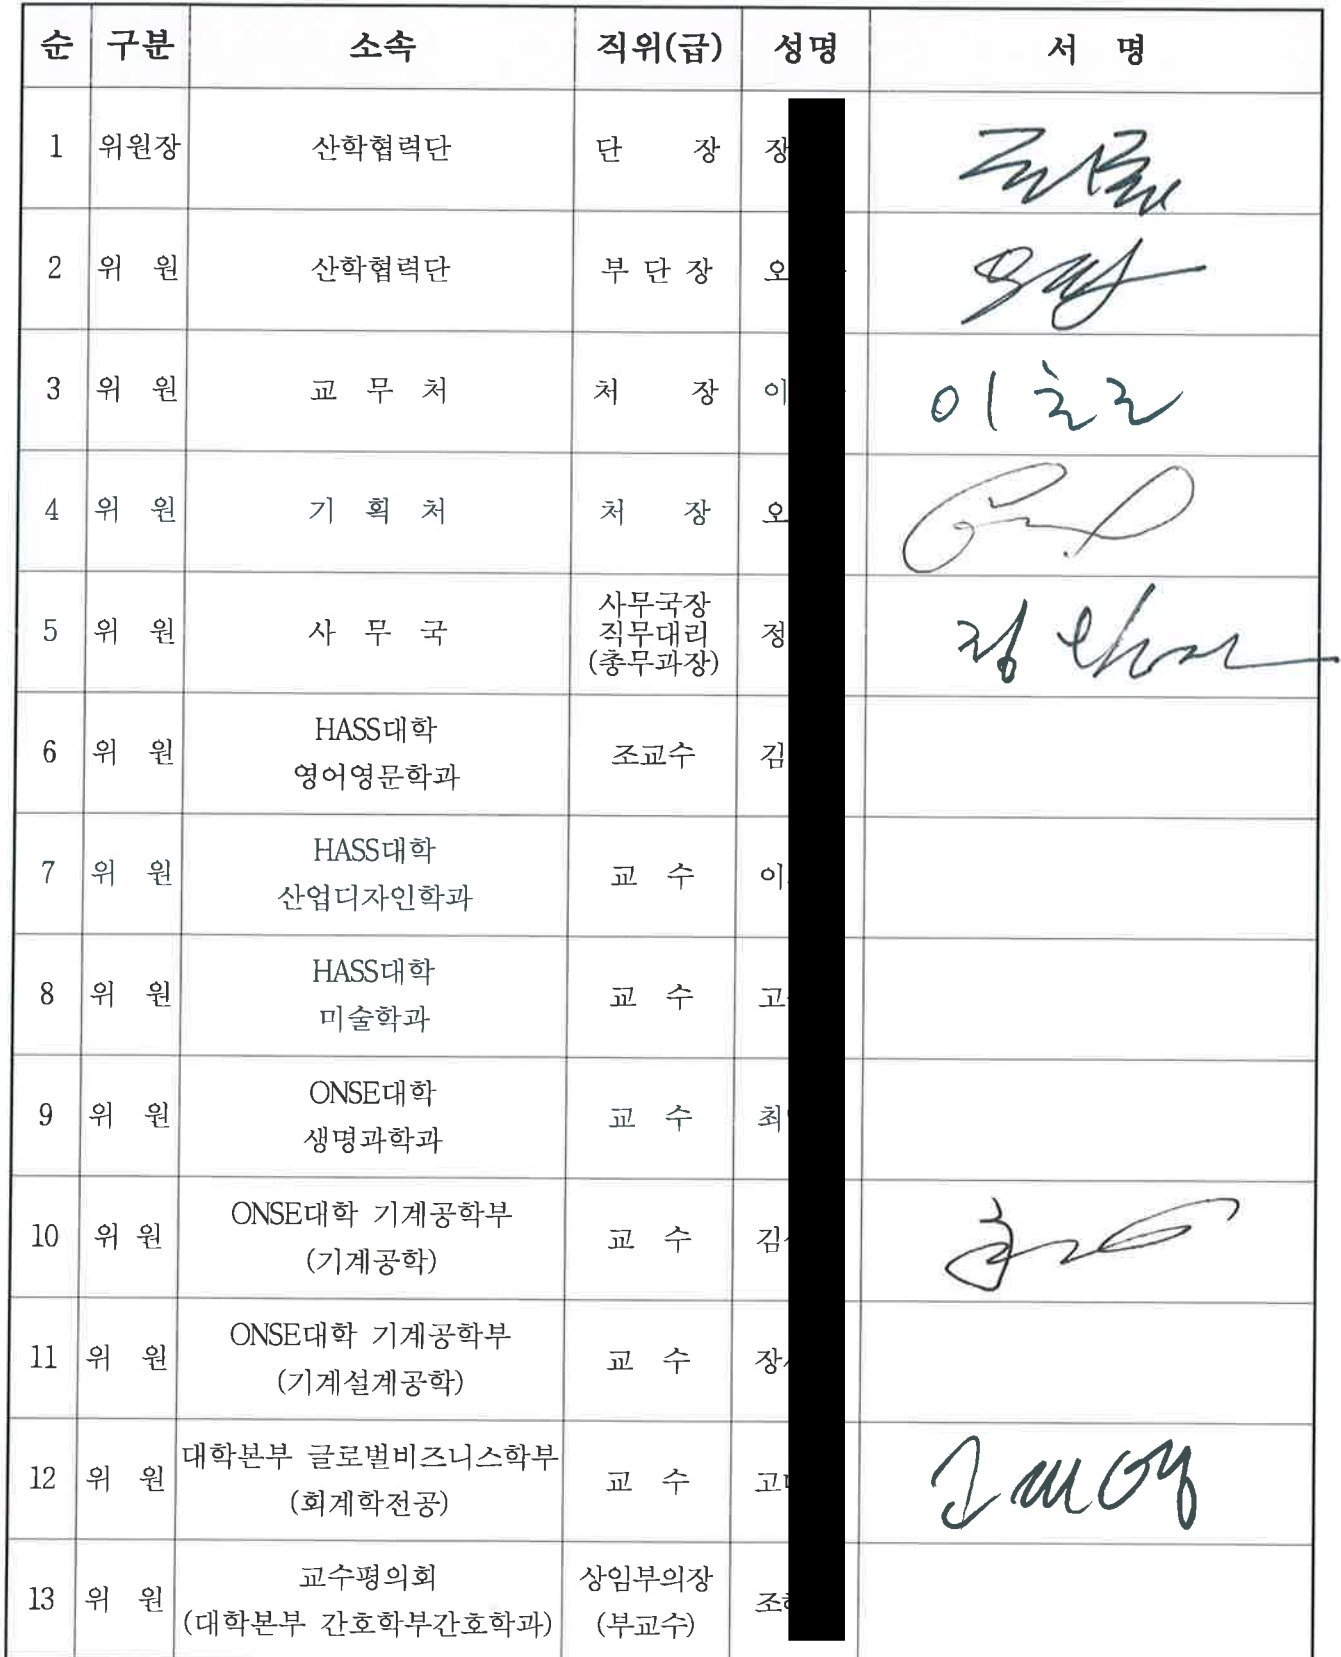 순 구분 소속 직위(급) 성명 서 명
1 위원장 산학협력단 단 장 장
2 위 원 산학협력단 부 단 장 오
3 위 원 교 무 처 처 장 이
4 위 원 기 획 처 처 장 오
5 위 원 사 무 국 사무국장
직무대리
(총무과장) 정
6 위 원 HASS대학
영어영문학과 조교수 김
7 위 원 HASS대학
산업디자인학과 교 수 이
8 위 원 HASS대학
미술학과 교 수 고
9 위 원 ONSE대학
생명과학과 교 수 최
10 위 원 ONSE대학 기계공학부
(기계공학) 교 수 김
11 위 원 ONSE대학 기계공학부
(기계설계공학) 교 수 장
12 위 원 대학본부 글로벌비즈니스학부
(회계학전공) 교 수 고
13 위 원 교수평의회
(대학본부 간호학부간호학과) 상임부의장
(부교수) 조